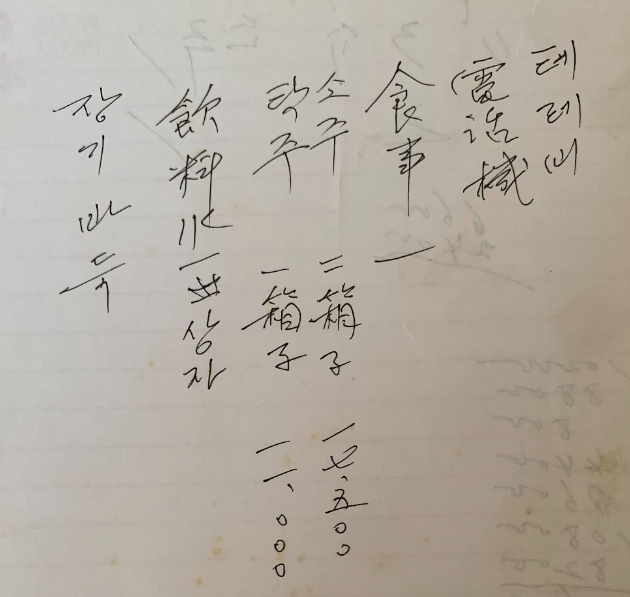 테레비
電話械
食事 一
소주 二箱子 一七、五〇〇
탁주 一箱子 一一、〇〇〇
飮料水 一 상자
장기 바둑